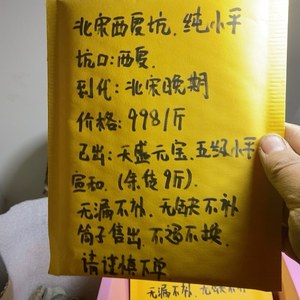 北宋西夏坑、纯小平
坑口:西夏.
到代:北宋晚期
价格:998/斤
已出:天盛元宝、五级小平
宣和.(余货9斤).
无漏不补、无缺不补
筒子售出、不退不换.
请谨慎下单
无漏不补、无缺不补